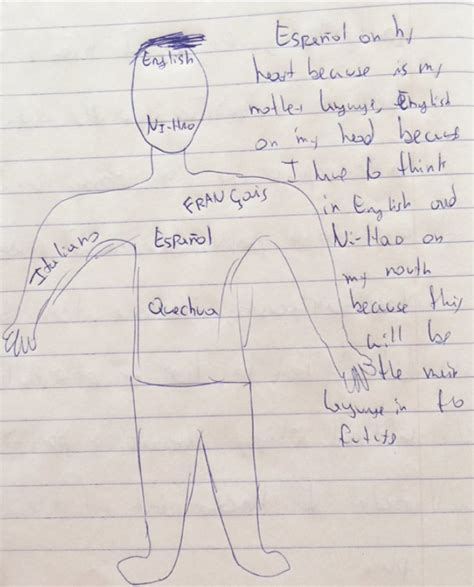 English
Ni-Hao
FRANÇais
Italiano
Español
Quechua
Español on my
heart because is my
mother lagnuge, English
on my head becaus
I have to think
in English and
Ni-Hao on
my mouth
because this
will be
the main
lagnuge in
future